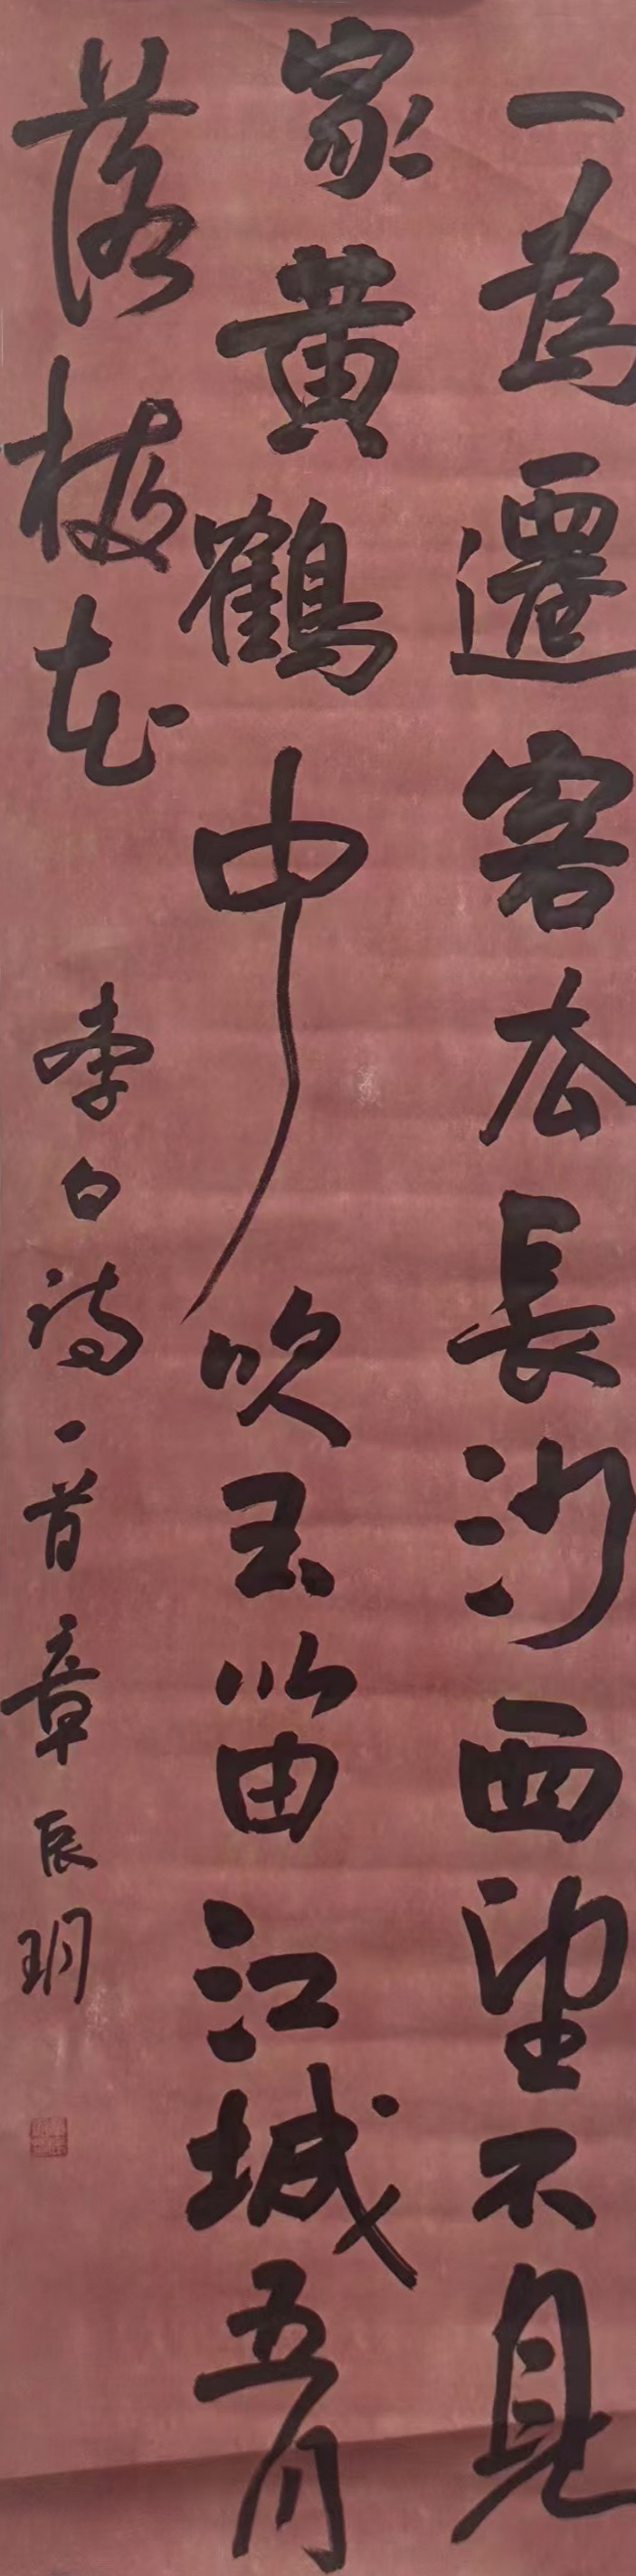 一為遷客去長沙西望不見
家黄鶴中吹玉笛江城五月
落梅花
李白詩一首章辰玥